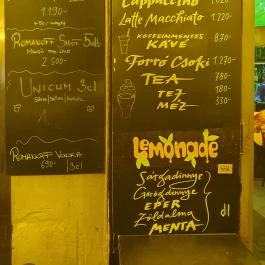 1.190-
Romanoff Shot 5dl
2.500-
Unicum 3cl
Romanoff Vodka
690- /3cl
Cappuccino 1.020-
Latte Macchiato 1.220-
Koffeinmentes
Kávé 870-
Forró Csoki 1.120-
Tea 780-
Tej 180-
Méz 330-
Lemonade
Sárgadinnye
Görögdinnye
Eper
Zöldalma
Menta
dl